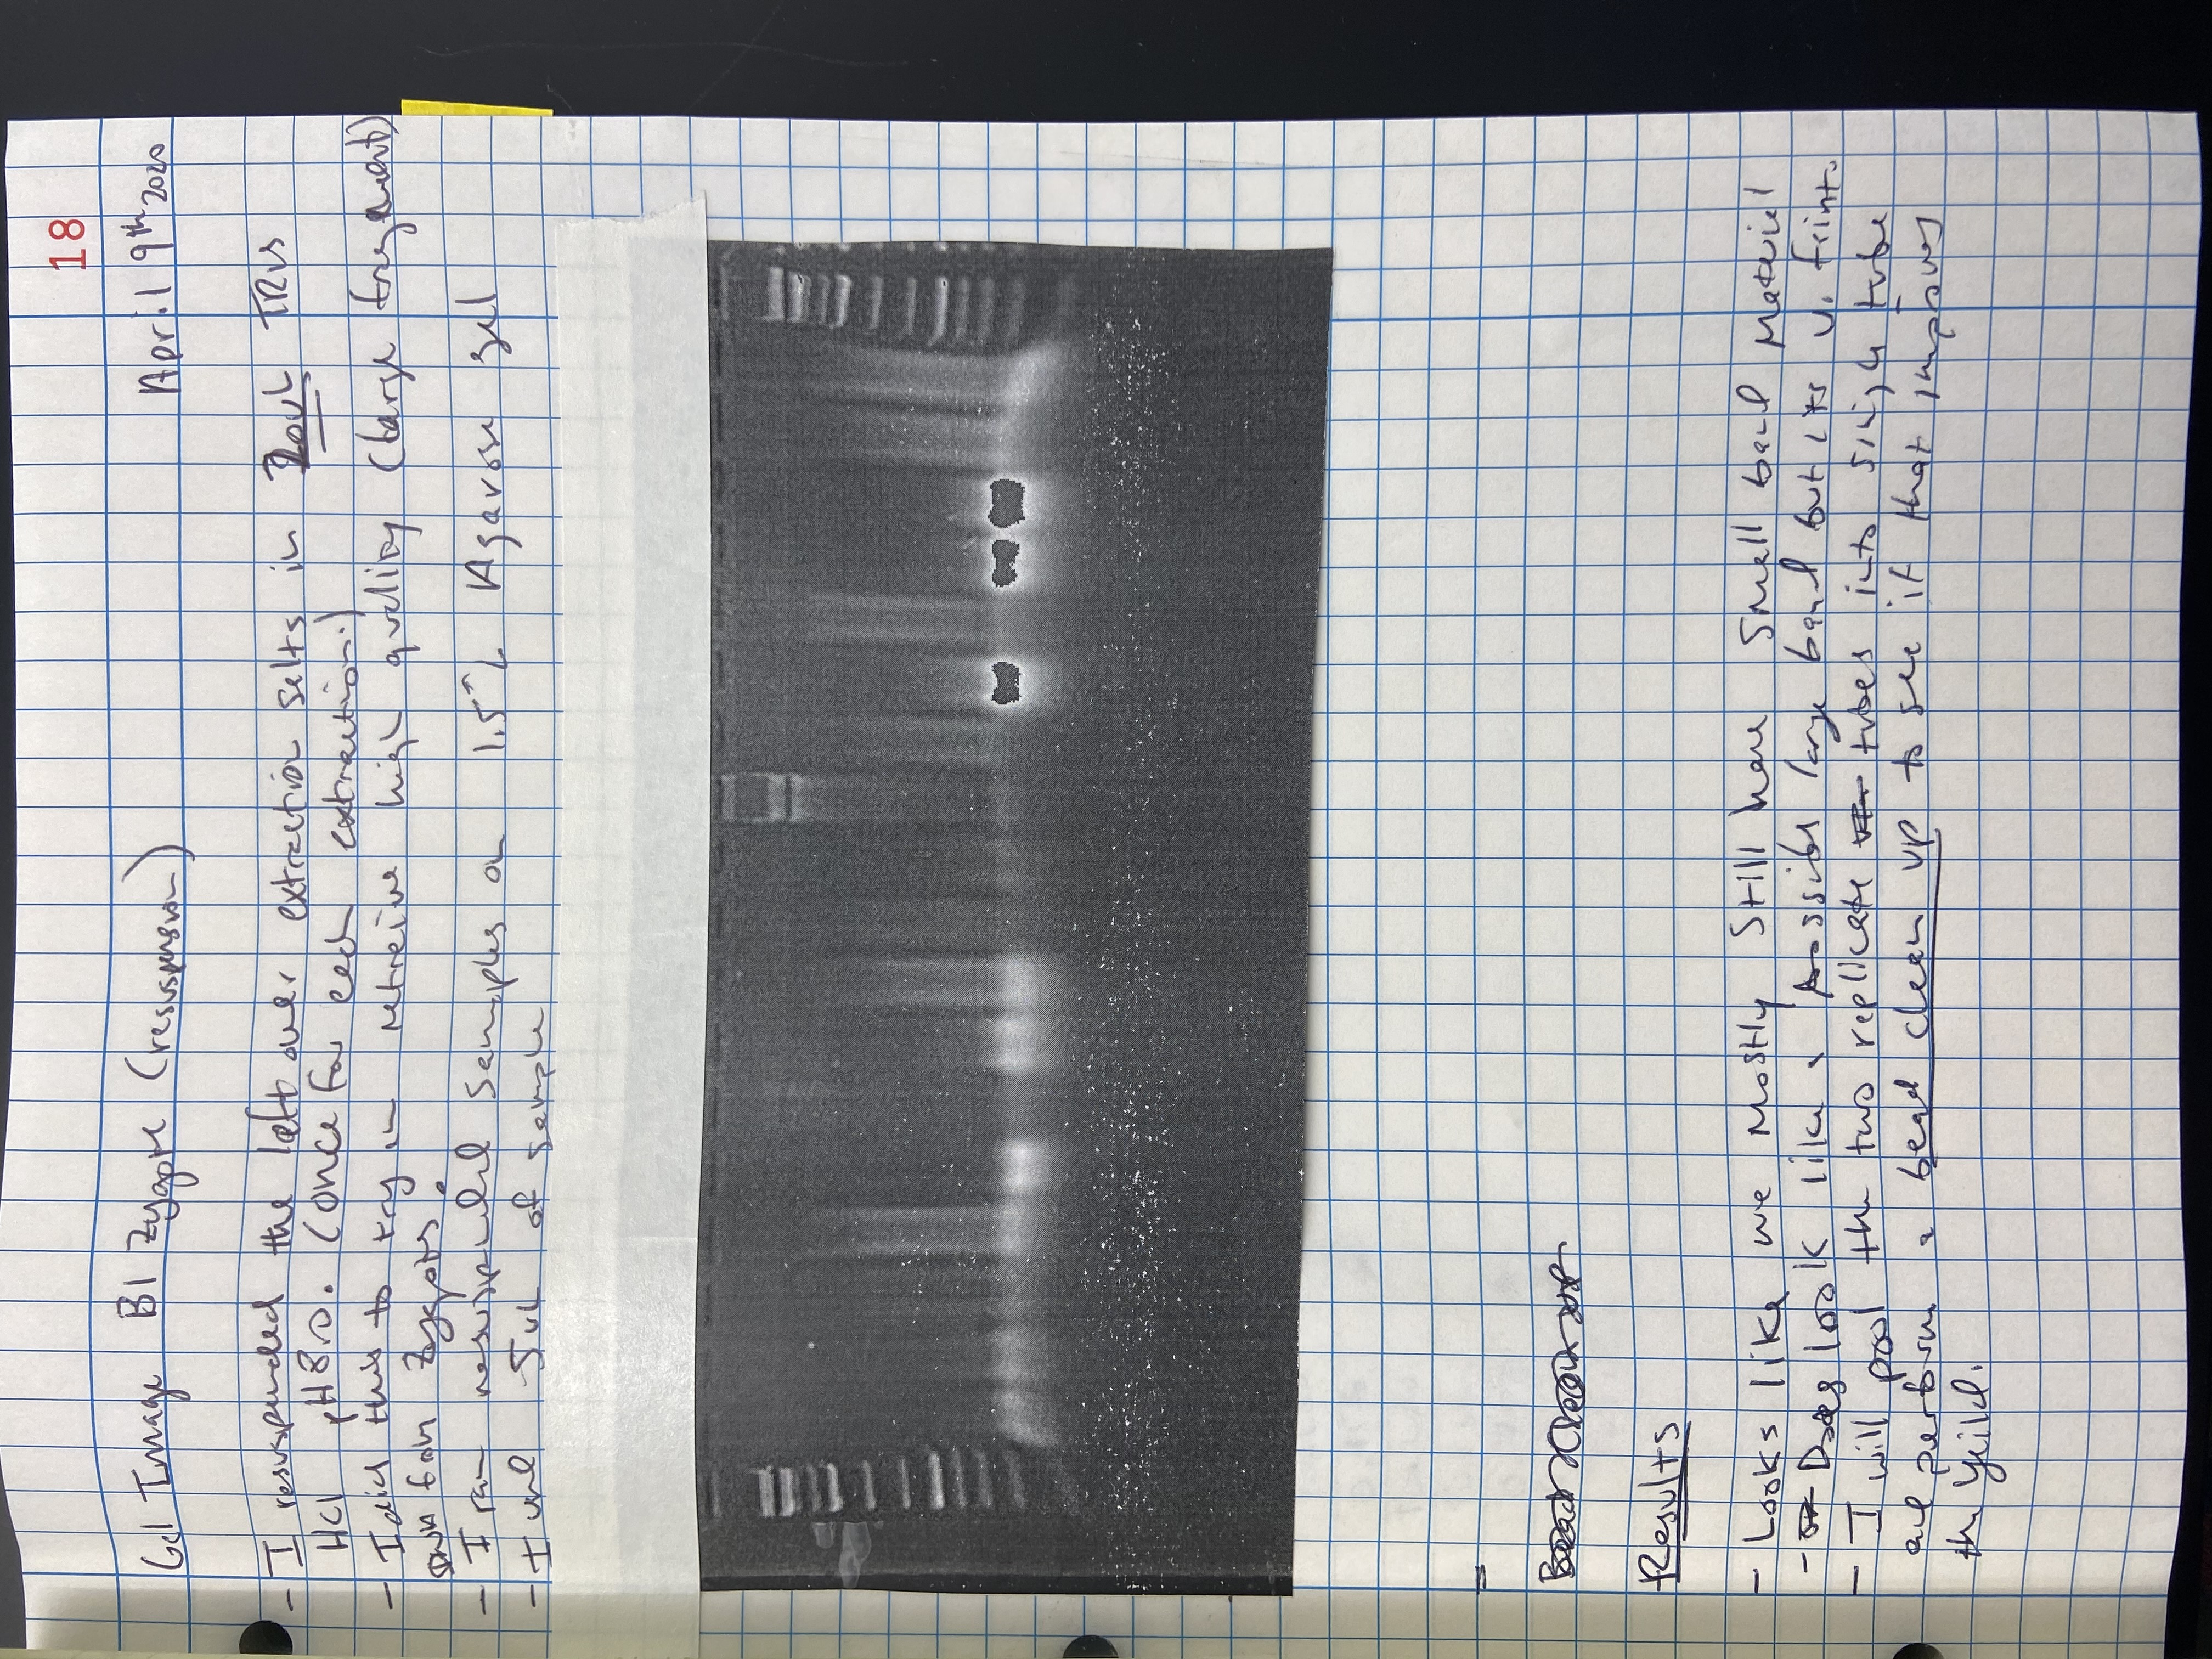 18
Gel Image B1 Zygote (resuspension) April 9th 2020
- I resuspended the left over extraction salts in 20uL TRIS
HCl pH 8.0. (once for each extraction.)
- I did this to try in retreive high quality (large fragment)
DNA from Zygots.
- I ran resuspended samples on 1.5% Agarose gel
- I used 5uL of sample
Bead Clean up
Results
- Looks like we Mostly Still have Small band Material
- Does look like a possible large band but its v. faint.
- I will pool the two replicate tubes into single tube
and perform a bead clean up to see if that improves
the yeild.